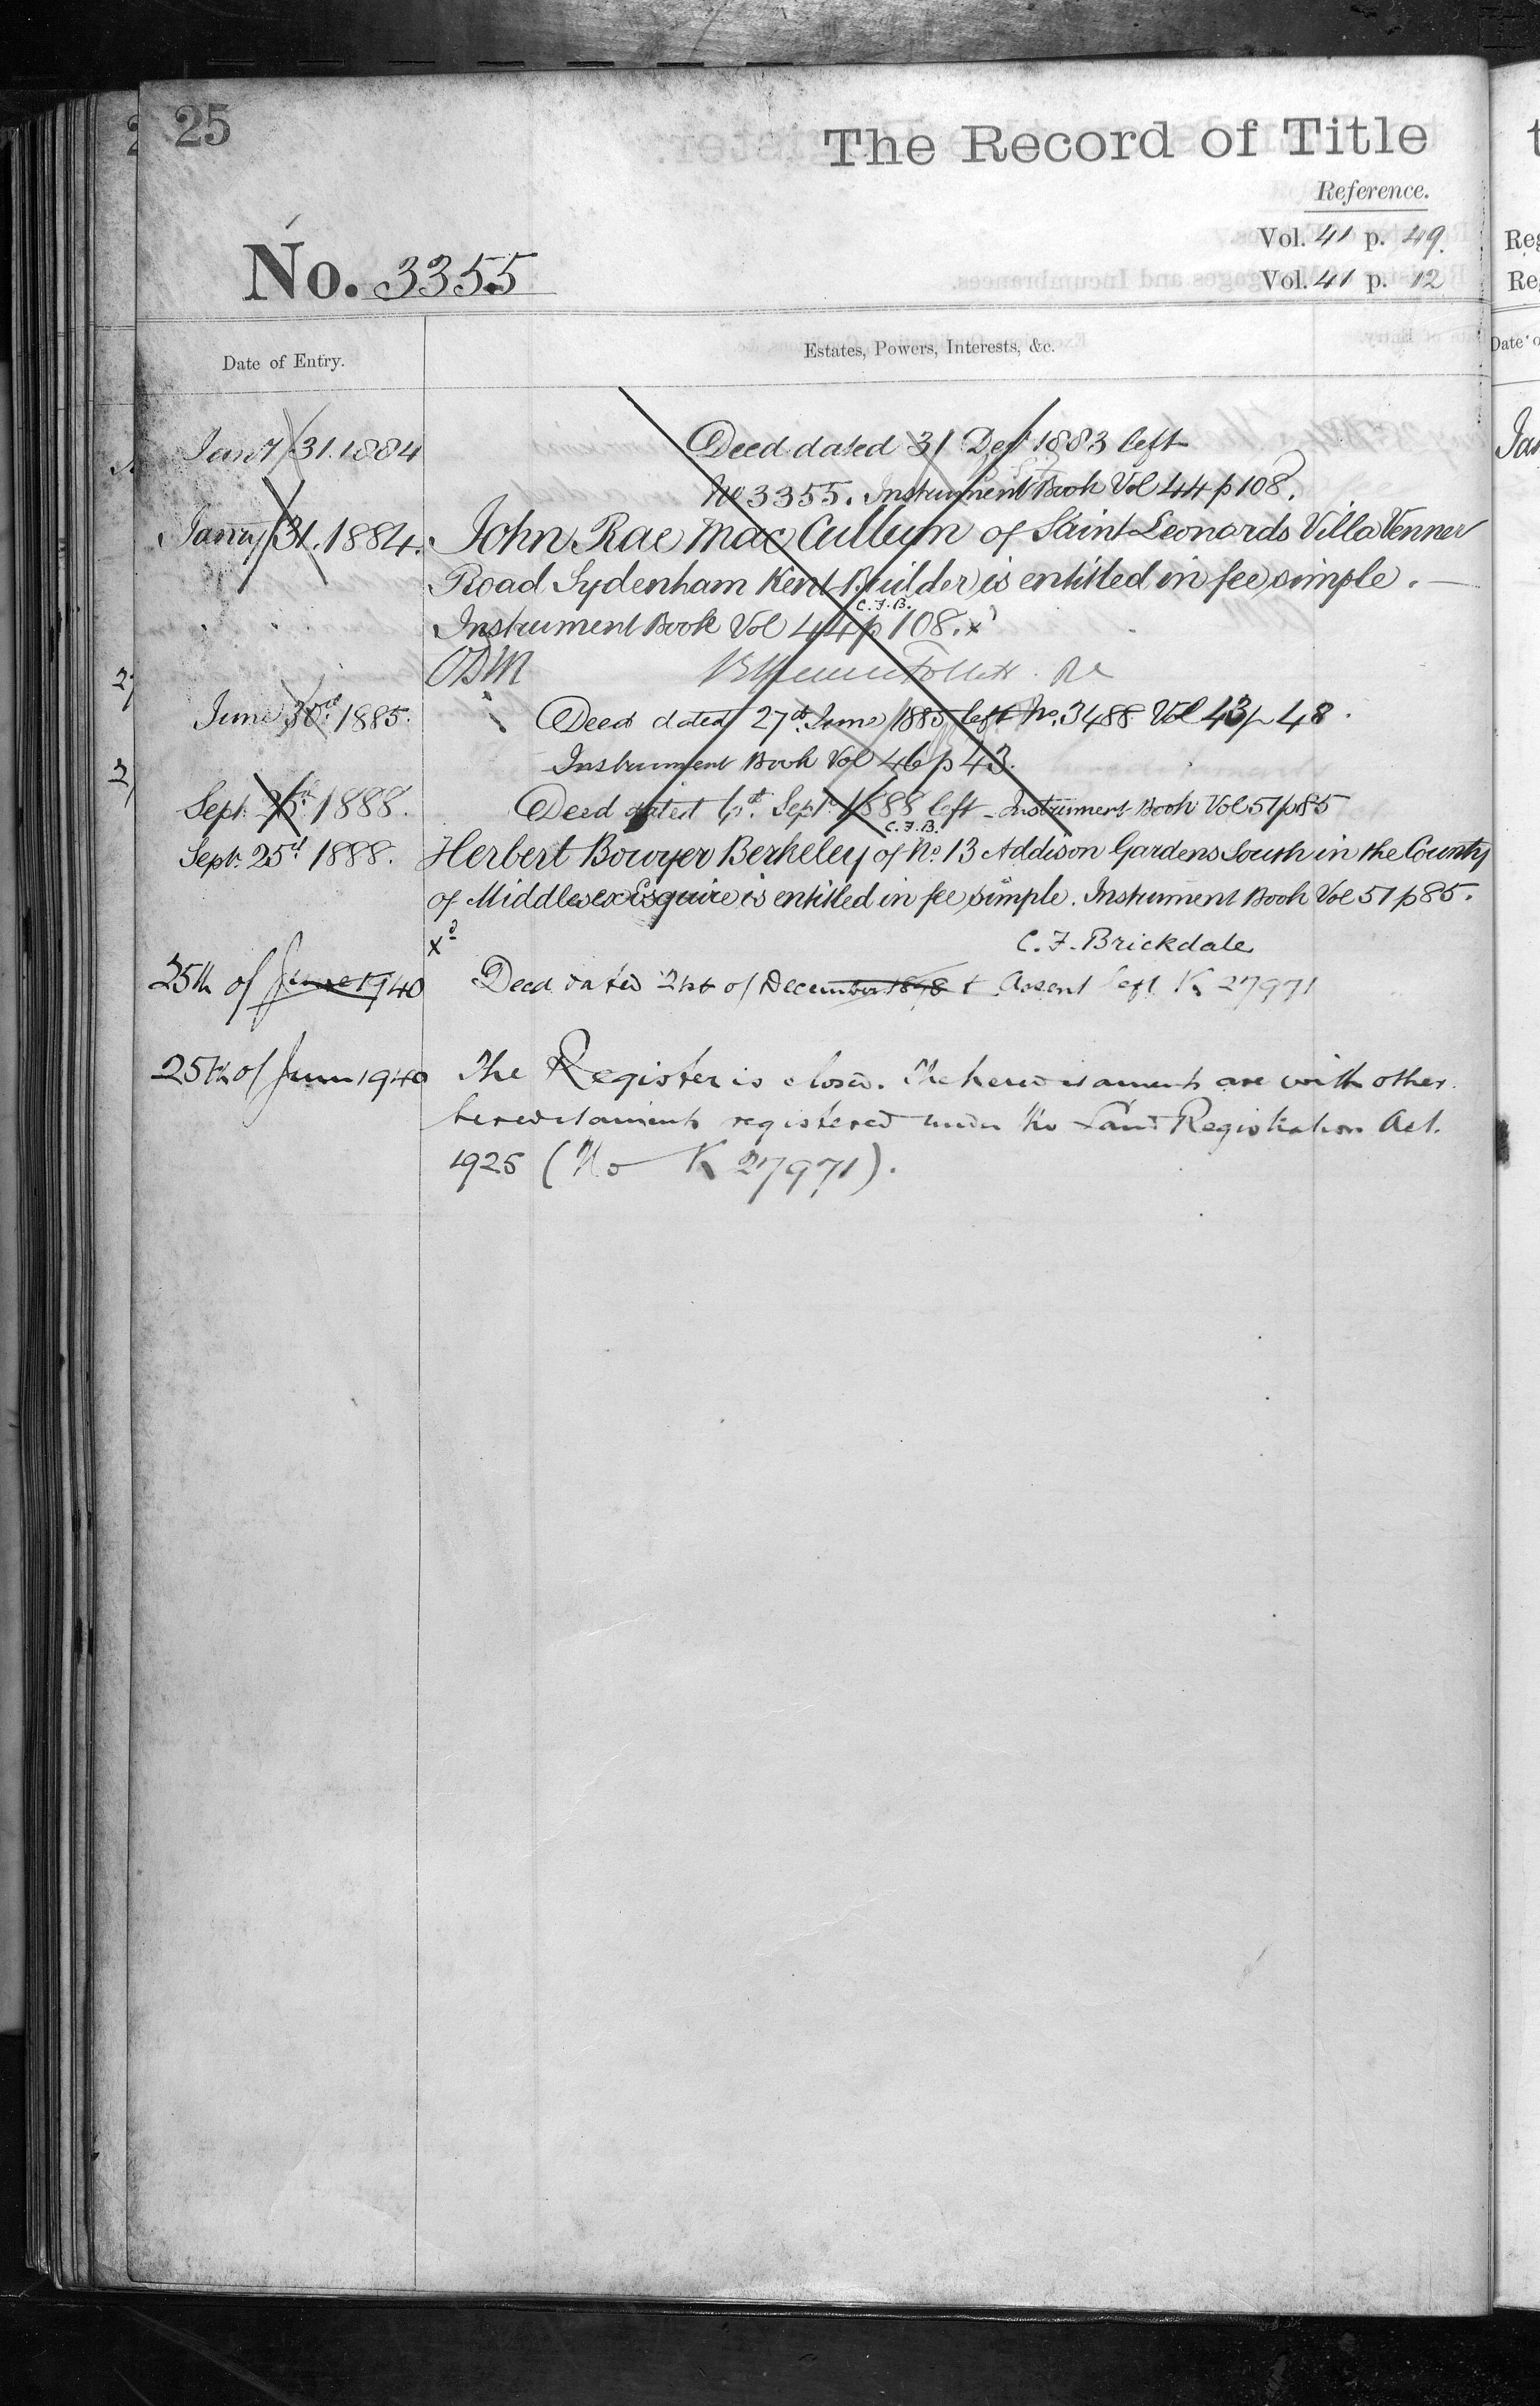 25
The Record of Title
Reference.
Vol. 41 p. 49.
No. 3355
Vol. 41 p. 12
Date of Entry.
Estates, Powers, Interests, &c.
Jany 31. 1884
Deed dated 31 Decr 1883 left
No 3355. Instrument Book Vol 44 p 108.
Janry 31. 1884.
John Rae Mac Cullum of Saint Leonards Villa Venner
Road Sydenham Kent Builder is entitled in fee simple.
C.F.B.
Instrument Book Vol 44 p 108. x
June 30th 1885.
Deed dated 27th June 1885 left No. 3488 Vol 43 p 48.
Instrument Book Vol 46 p 43.
Sept. 25th 1888.
Deed dated 6th Sept. 1888 left - Instrument Book Vol 51 p 85
C.F.B.
Sept. 25th 1888.
Herbert Bowyer Berkeley of No. 13 Addison Gardens South in the County
of Middlesex Esquire is entitled in fee simple. Instrument Book Vol 51 p 85.
C. F. Brickdale
25th of June 1940
Deed dated 21st of December 1898 + Assent left K 27971
25th of June 1940
The Register is closed. The hereditaments are with other
hereditaments registered under the Land Registration Act.
1925 (No K 27971).